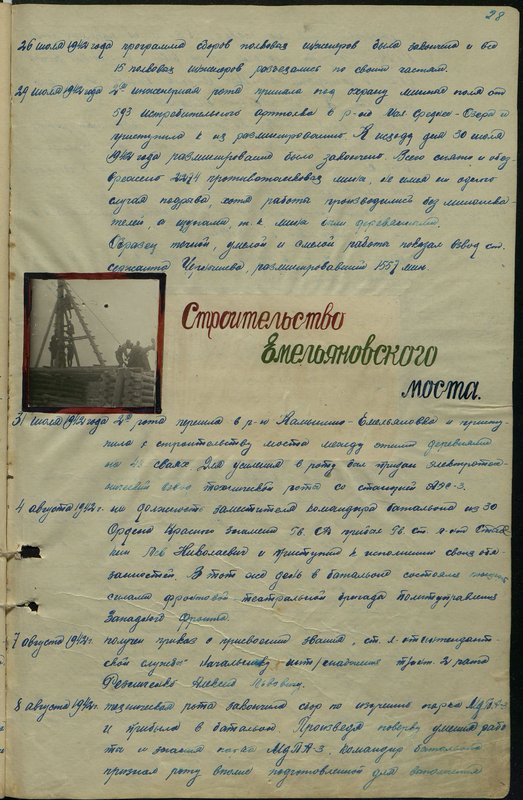 28
26 июля 1942 года программа сборов полковых инженеров была закончена и все
15 полковых инженеров разъехались по своим частям.
29 июля 1942 года 2ая инженерная рота приняла под охрану минные поля от
593 истребительного артполка в р-не
приступила к их разминированию. К исходу дня 30 июля
1942 года разминирование было закончено. Всего снято и обез
врежено 2274 противотанковых мины, не имея ни одного
случая подрыва, хотя работа производилась без миноиска
телей, а щупами, т.к. мины были деревянными.
Образец точной, умелой и смелой работы показал взвод ст.
сержанта Чернышева, разминировавший 1557 мин.
Строительство
Емельяновского
моста.
31 июля 1942 года 2ая рота перешла в р-н Камынино-Емельяновка и присту-
пила к строительству моста между этими деревнями
на 43 сваях. Для усиления в роту был придан электротех-
нический взвод технической роты со станцией АЭС-3.
4 августа 1942 г. на должность заместителя командира батальона из 30
Ордена Красного Знамени Гв. СД прибыл Гв. ст. л-нт
Николаевич и приступил к исполнению своих обя-
занностей. В этот же день в батальоне состоялся концерт
силами фронтовой театральной бригады Политуправления
Западного Фронта.
7 августа 1942 г. получен приказ о присвоении звания, ст. л-нт интендант-
ской службы Начальнику
Резниченко Алексей Львович.
8 августа 1942 г. техническая рота закончила сбор по изучению парка МдПА-3
и прибыла в батальон. Произведя поверку умения рабо
ты и знания парка МдПА-3, командир батальона
признал роту вполне подготовленной для выполнения